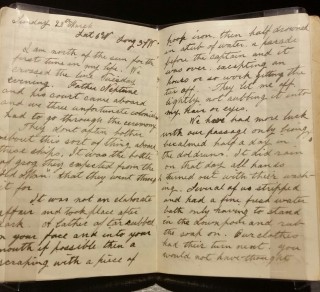 Sunday 23rd
Lat 5°N Long 29W.
I am north of the sun for the
first time in my life. We
crossed the line Tuesday
evening. Father Neptune
and his court came aboard
and we three unfortunate colonials
had to go through the ceremony.
They dont often bother
about this sort of thing aboard
these ships. It was the bottle
of grog they expected from the
"old Man" that they went through
it for
It was not an elaborate
affair and took place after
dark. A lather is
on your face and into your
mouth if possible then a
scraping with a piece of
hoop iron then half drowned
in a tub of water. a parade
before the captain and it
was over excepting an
hours or so work getting the
tar off. They let me off
lightly not rubbing it into
my hair or eyes.
We have had more luck
with our passage only being
becalmed half a day in
the doldrums. It did rain
on that day all hands
turned out with their wash-
ing. Several of us stripped
and had a fine fresh water
bath only having to stand
in the downpour and rub
the soap on. Our clothes
had their turn next. you
would not have thought